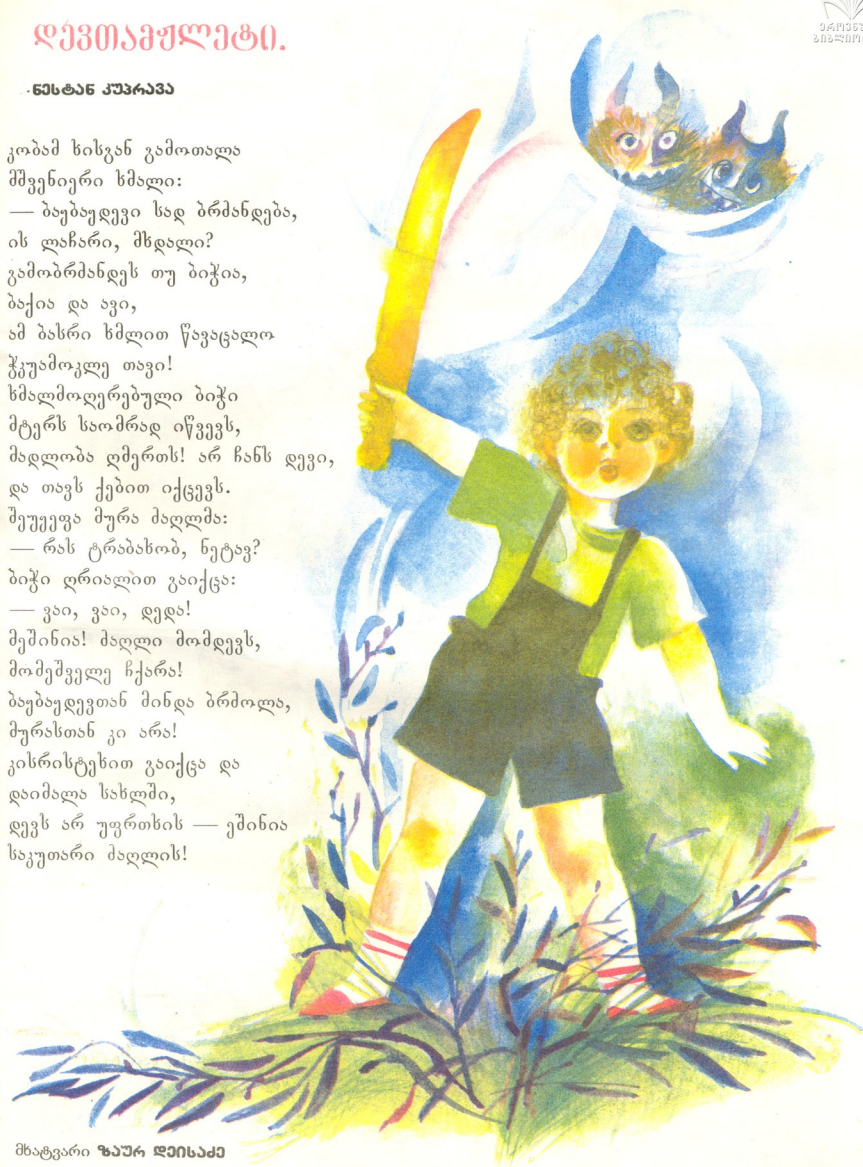 დევთამჟლეტი.
ნესტან კუპრავა
კობამ ხისგან გამოთალა
მშვენიერი ხმალი:
— ბაყბაყდევი სად ბრმანდება,
ის ლაჩარი, მხდალი?
გამობრმანდეს თუ ბიჭია,
ბაქია და ავი,
ამ ბასრი ხმლით წავაცალო
ჭკუამოკლე თავი!
ხმალმოღერებული ბიჭი
მტერს საომრად იწვევს,
მადლობა ღმერთს! არ ჩანს დევი,
და თავს ქებით იქცევს.
შეუყეფა მურა ძაღლმა:
— რას ტრაბახობ, ნეტავ?
ბიჭი ღრიალით გაიქცა:
— ვაი, ვაი, დედა!
მეშინია! ძაღლი მომდევს,
მომეშველე ჩქარა!
ბაყბაყდევთან მინდა ბრძოლა,
მურასთან კი არა!
კისრისტეხით გაიქცა და
დაიმალა სახლში,
დევს არ უფრთხის — ეშინია
საკუთარი ძაღლის!
მხატვარი ზაურ დეისაძე